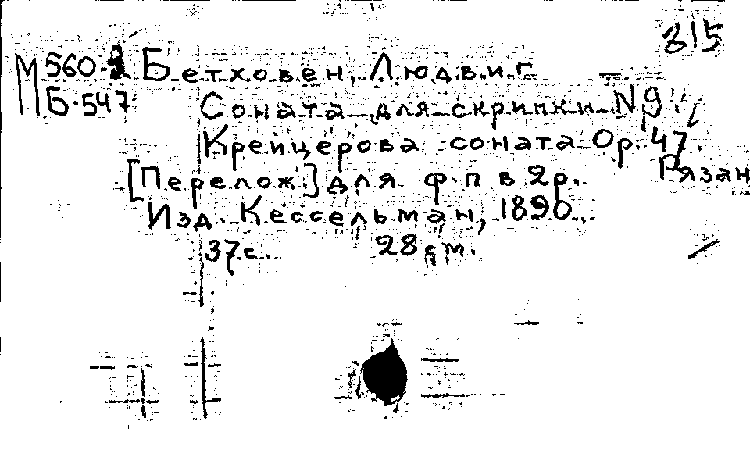 315
М560-3 Бетховен, Людвиг
Б-547 Соната для скрипки N9
Крейцерова соната Op. 47.
[Перелож.] для ф-п в 2р. Рязан
Изд. Кессельман, 1890.
37с. 28см.